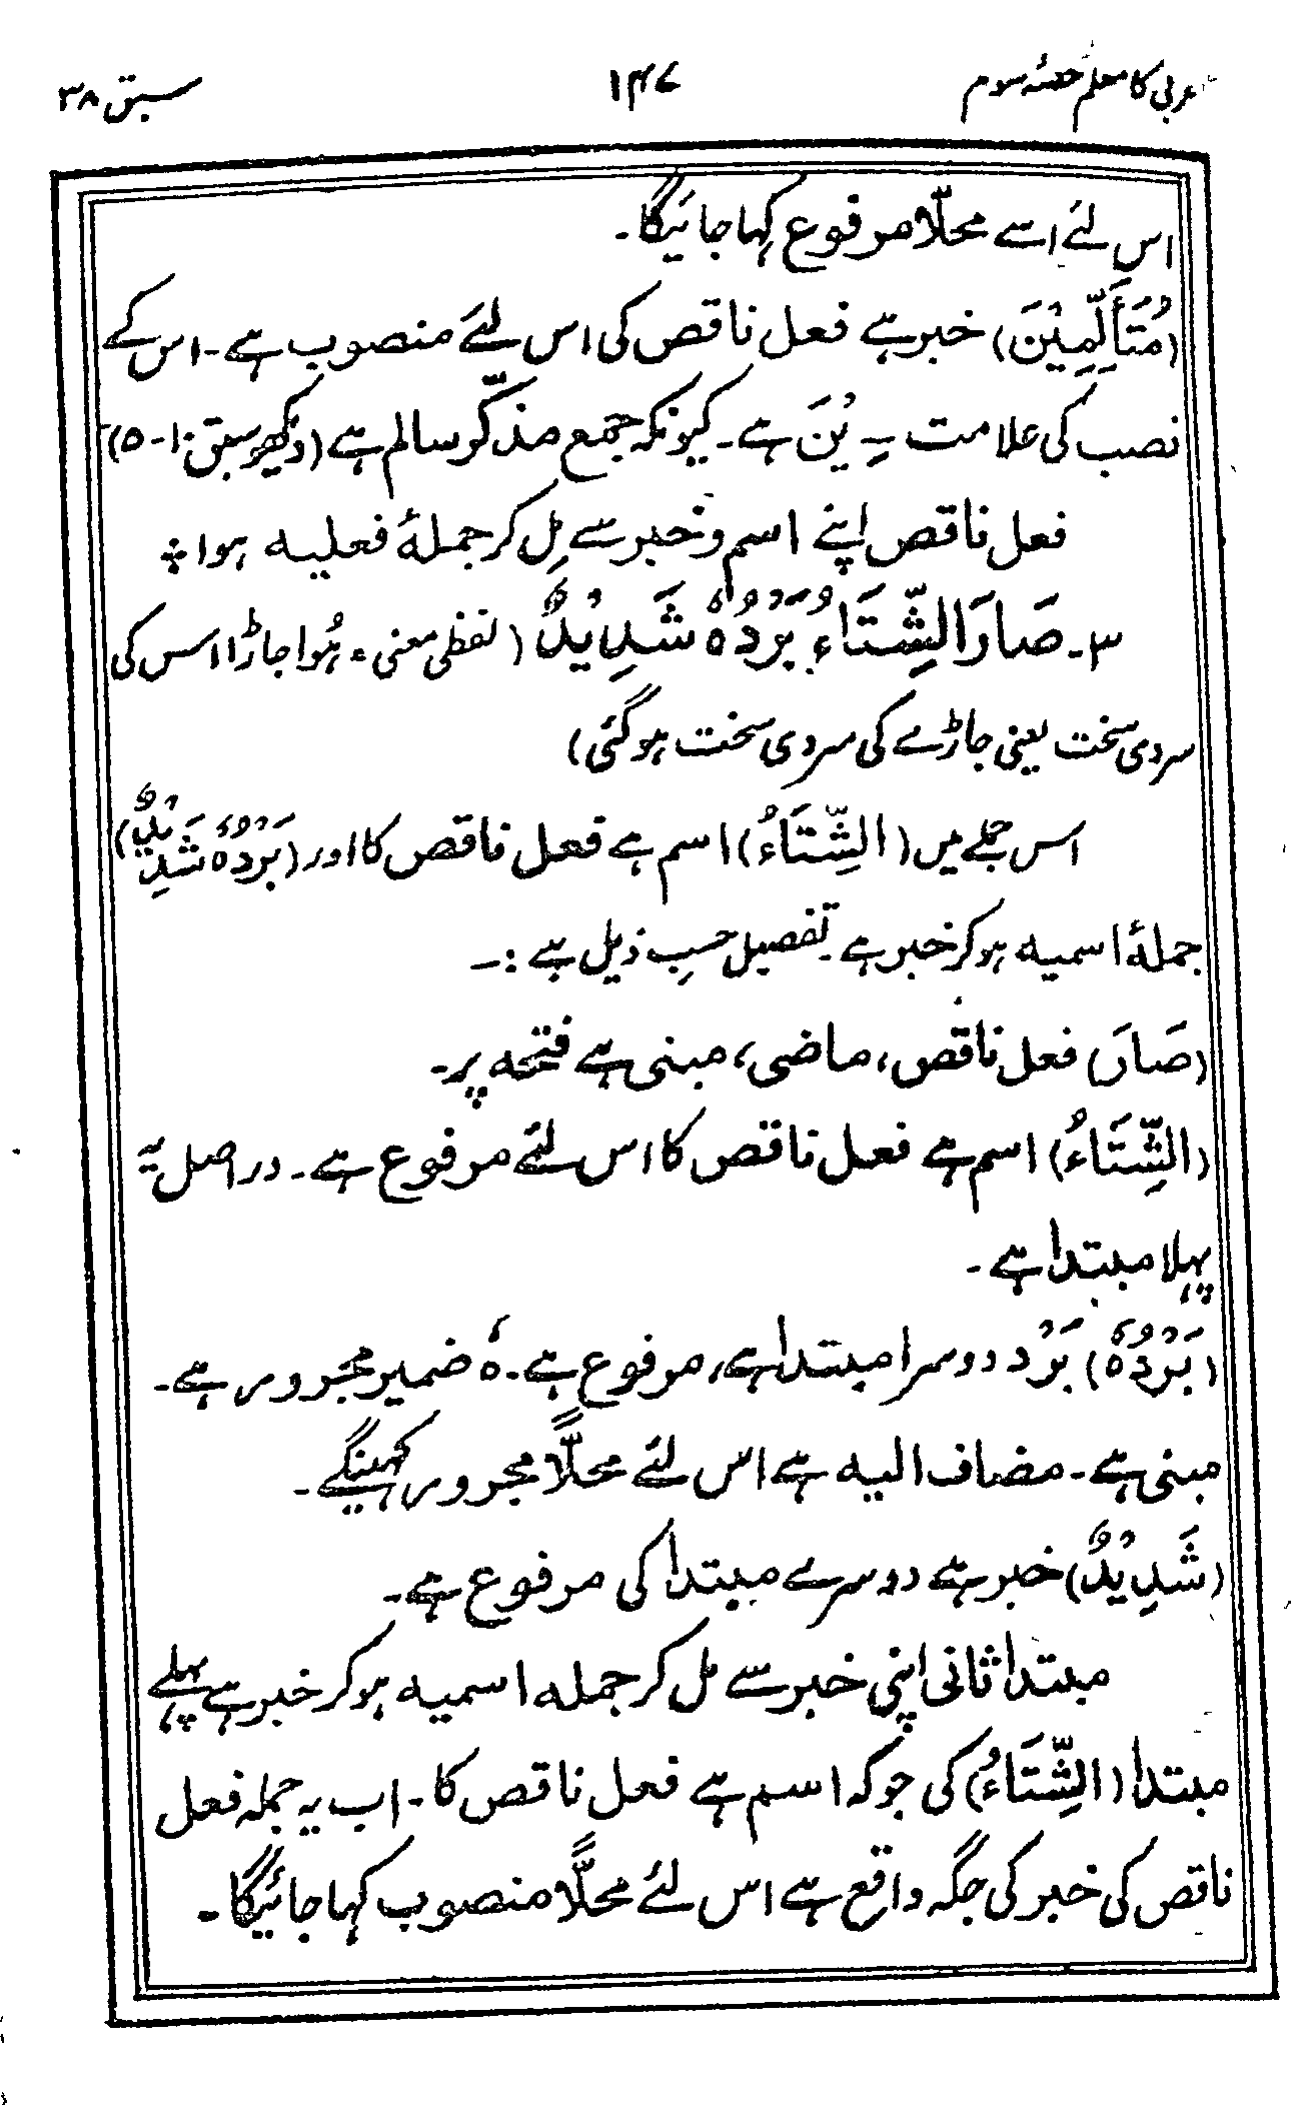 عربی کا معلم حصّۂ سوم ۱۴۷ سبق ۳۸
اس لئے اسے محلّا مرفوع کہا جائیگا۔
(مُتَأَلِّمِيْنَ) خبر ہے فعل ناقص کی اس لئے منصوب ہے۔ اس کے
نصب کی علامت ـِ يْنَ ہے۔ کیونکہ جمع مذکّر سالم ہے (دیکھو سبق ۱۰-۵)
فعل ناقص اپنے اسم و خبر سے مِل کر جملۂ فعلیہ ہوا ؞
۳۔ صَارَ الشِّتَاءُ بَرْدُهُ شَدِيْدٌ (لفظی معنی = ہُوا جاڑا اس کی
سردی سخت یعنی جاڑے کی سردی سخت ہوگئی)
اس جملے میں (الشِّتَاءُ) اسم ہے فعل ناقص کا اور (بَرْدُهُ شَدِيْدٌ)
جملۂ اسمیہ ہوکر خبر ہے۔ تفصیل حسبِ ذیل ہے :۔
(صَارَ) فعل ناقص، ماضی، مبنی ہے فتحہ پر۔
(الشِّتَاءُ) اسم ہے فعل ناقص کا اس لئے مرفوع ہے۔ در اصل یہ
پہلا مبتدا ہے۔
(بَرْدُهُ) بَرْد دوسرا مبتدا ہے، مرفوع ہے۔ هُ ضمیر مجرور ہے۔
مبنی ہے۔ مضاف الیہ ہے اس لئے محلًّا مجرور کہینگے۔
(شَدِيْدٌ) خبر ہے دوسرے مبتدا کی مرفوع ہے۔
مبتدا ثانی اپنی خبر سے مل کر جملہ اسمیہ ہوکر خبر ہے پہلے
مبتدا (الشِّتَاءُ) کی جوکہ اسم ہے فعل ناقص کا۔ اب یہ جملہ فعل
ناقص کی خبر کی جگہ واقع ہے اس لئے محلًّا منصوب کہا جائیگا۔